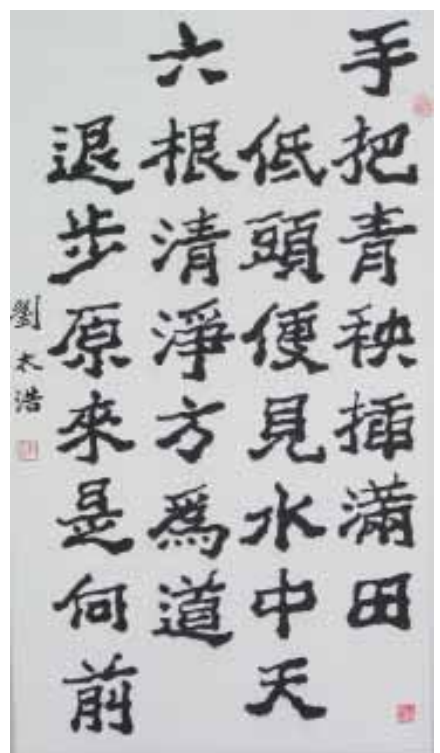 手把青秧插滿田
低頭便見水中天
六根清淨方爲道
退步原來是何前
劉太浩